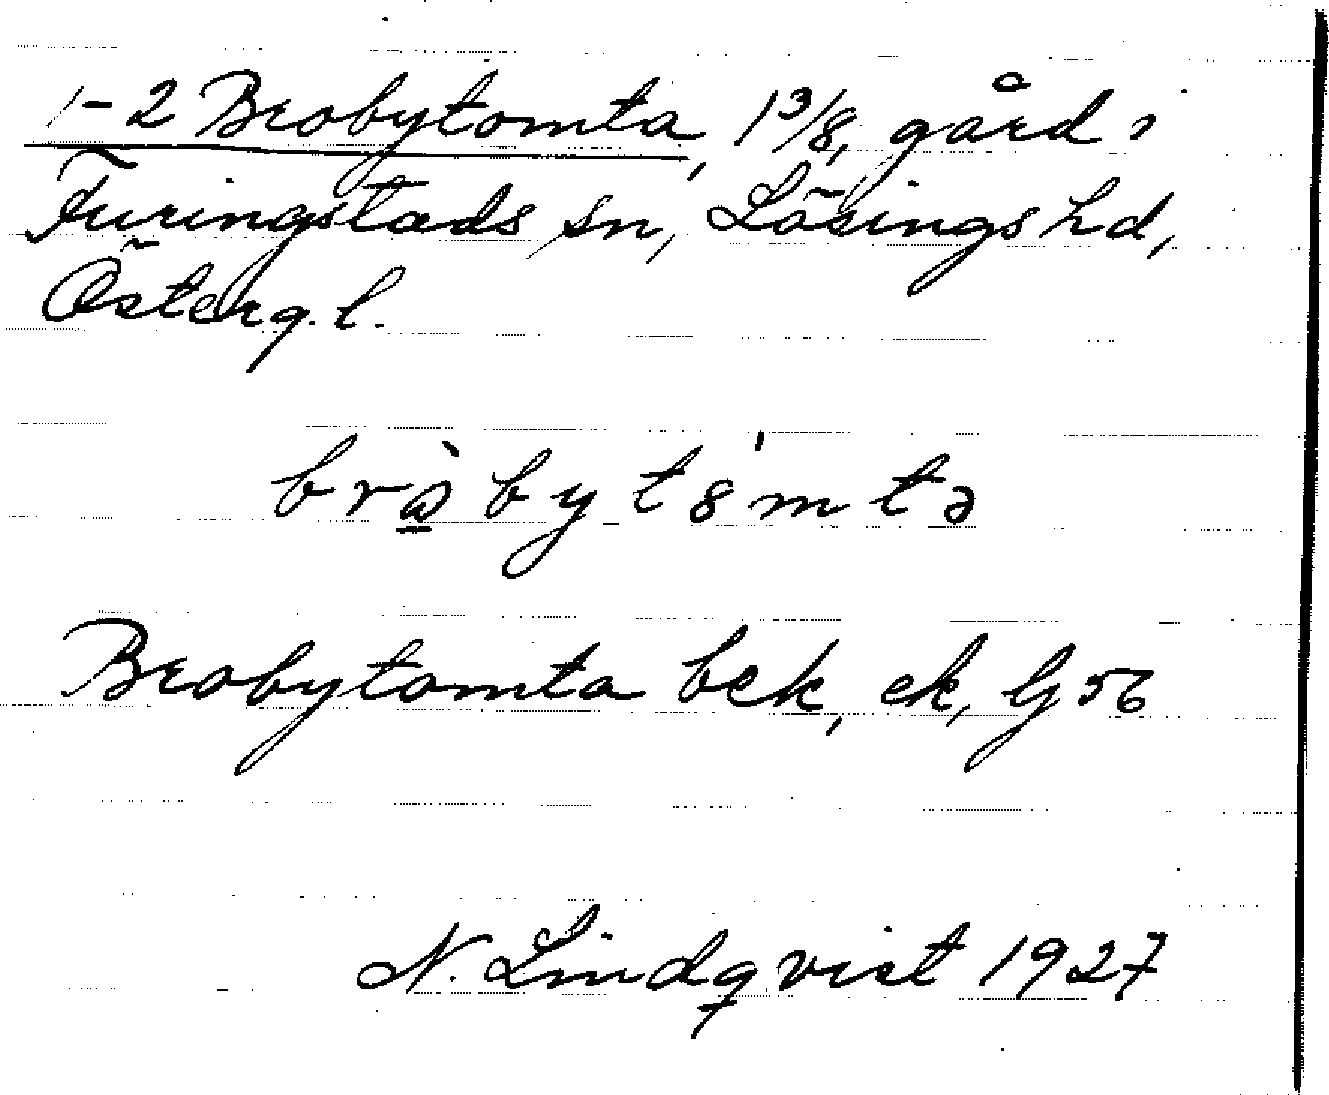 1-2 Brobytomta, 1 3/8, gård i
Furingstads sn, Lösings hd,
Österg. l.
brὼbytȣ́mtə
Brobytomta bek, ek, Gj 56
N. Lindqvist 1927